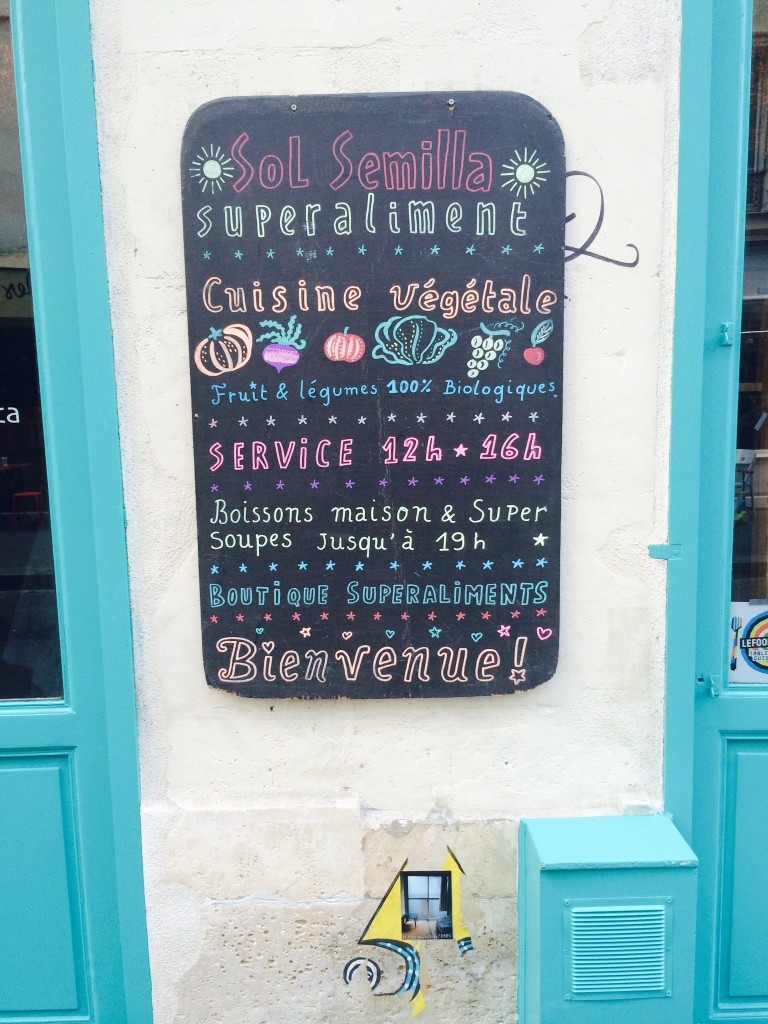 SoL Semilla
superaliment
Cuisine végétale
Fruit & légumes 100% Biologiques
SERViCE 12h ★ 16h
Boissons maison & Super
Soupes Jusqu'à 19h
BOUTiQUE SUPERALiMENTS
Bienvenue!
ca
LEFOO